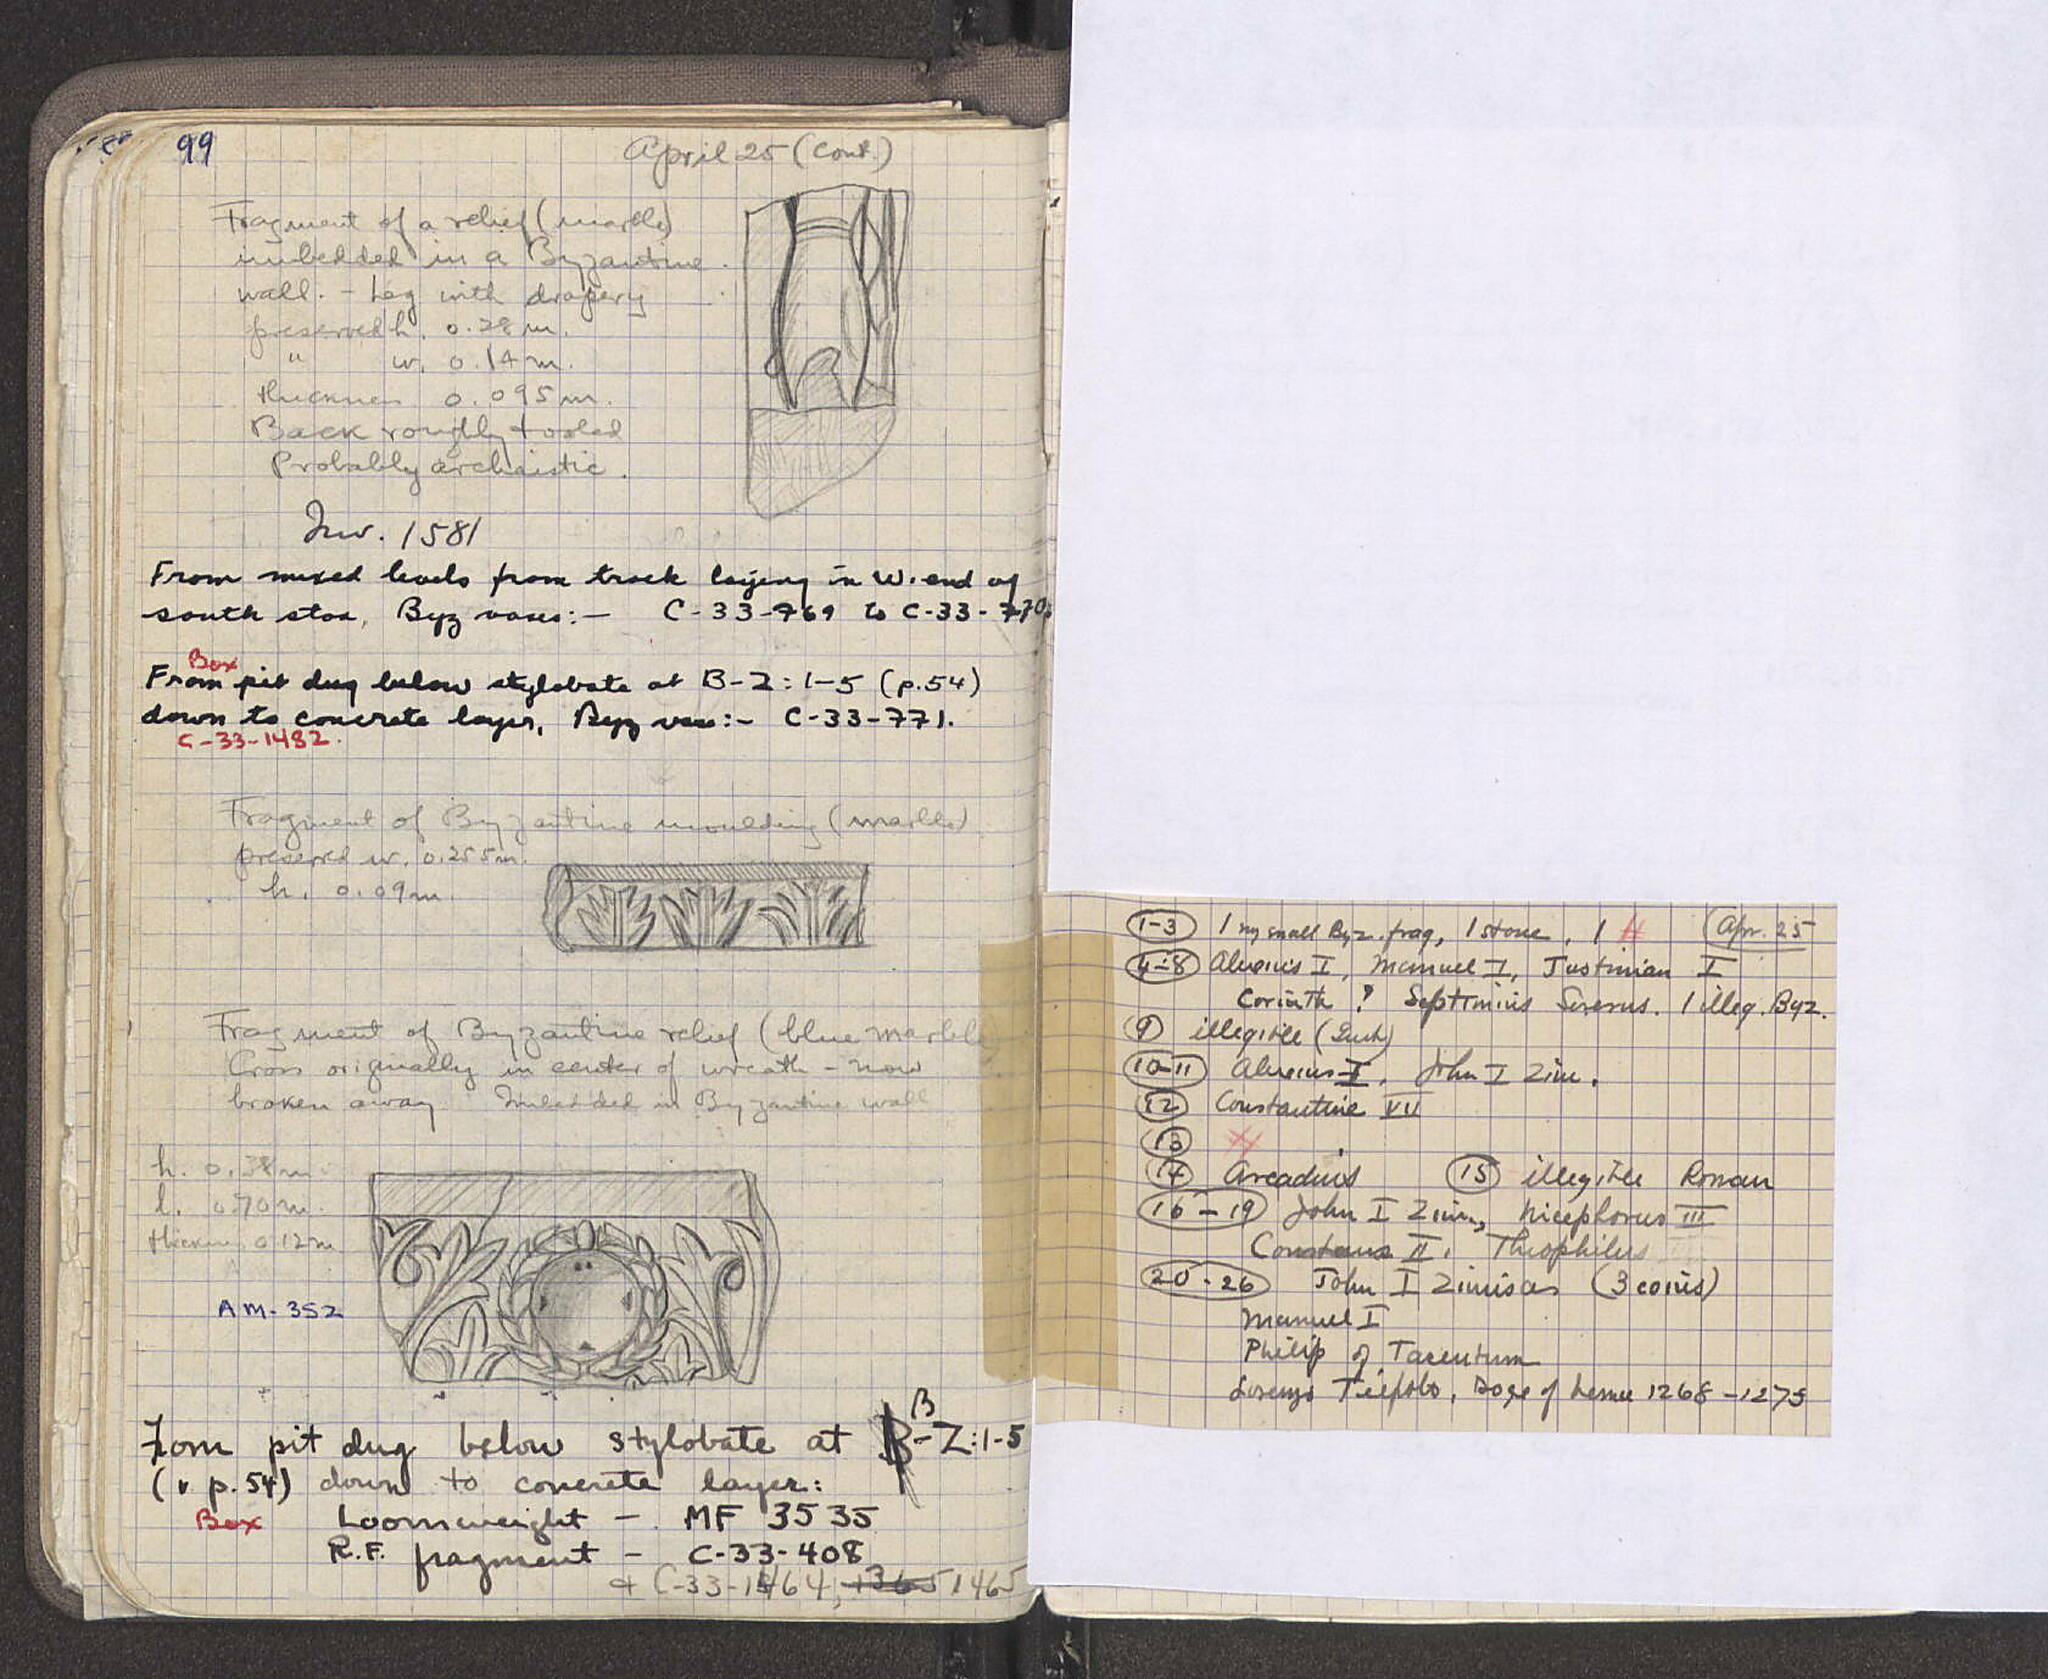 99
April 25 (cont.)
Fragment of a relief (marble)
imbedded in a Byzantine
wall. - Leg with drapery
preserved h. 0.28 m.
" w. 0.14 m.
thickness 0.095 m.
Back roughly tooled
Probably archaistic.
Inv. 1581
From mixed levels from track laying in W. end of
south stoa, Byz vases:- C-33-769 to C-33-770
Box
From pit dug below stylobate at B-Z: 1-5 (p.54)
down to concrete layer, Byz vase:- C-33-771.
C-33-1482.
Fragment of Byzantine moulding (marble)
preserved w. 0.255 m.
h. 0.09 m.
Fragment of Byzantine relief (blue marble)
Cross originally in center of wreath - now
broken away Imbedded in Byzantine wall
h. 0.38 m.
l. 0.70 m.
thickness 0.12 m
AM-352
From pit dug below stylobate at B-Z:1-5
(v p.54) down to concrete layer:
Box Loomweight - MF 3535
R.F. fragment - C-33-408
+ C-33-1464, 1365 1465
1-3 1 v small Byz. frag, 1 stone, 1 Apr. 25
4-8 Alexius I, Manuel I, Justinian I
Corinth ? Septimius Severus. 1 illeg. Byz.
9 illegible
10-11 Alexius I, John I Zim.
12 Constantine VII
13
14 Arcadius 15 illegible Roman
16-19 John I Zim, Nicephorus III
Constans II, Theophilus
20-26 John I Zimisces (3 coins)
Manuel I
Philip of Tarentum
Lorenzo Tiepolo, Doge of Venice 1268-1275